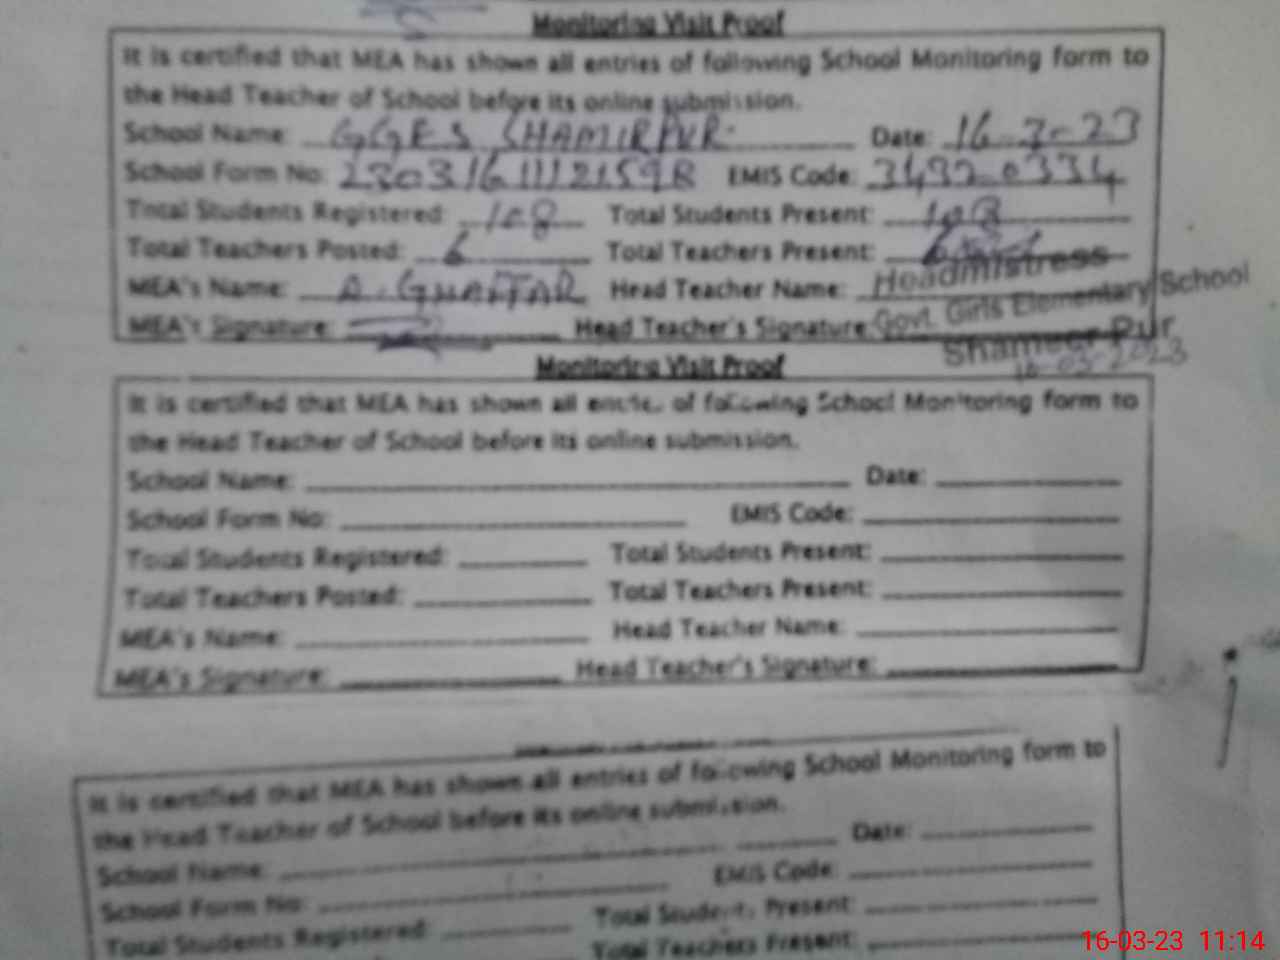 Monitoring Visit Proof
It is certified that MEA has shown all entries of following School Monitoring form to
the Head Teacher of School before its online submission.
School Name: GGES SHAMIRPUR Date: 16-3-23
School Form No: EMIS Code: 34320334
Total Students Registered: 108 Total Students Present: 108
Total Teachers Posted: 6 Total Teachers Present: 6
MEA's Name: A. GHAFFAR Head Teacher Name:
Headmistress
MEA's Signature: Head Teacher's Signature:
Govt. Girls Elementary School
Shameer Pur
16-03-2023
Monitoring Visit Proof
It is certified that MEA has shown all entries of following School Monitoring form to
the Head Teacher of School before its online submission.
School Name: Date:
School Form No: EMIS Code:
Total Students Registered: Total Students Present:
Total Teachers Posted: Total Teachers Present:
MEA's Name: Head Teacher Name:
MEA's Signature: Head Teacher's Signature:
It is certified that MEA has shown all entries of following School Monitoring form to
the Head Teacher of School before its online submission.
School Name: Date:
School Form No: EMIS Code:
Total Students Registered: Total Students Present:
Total Teachers Present:
16-03-23 11:14